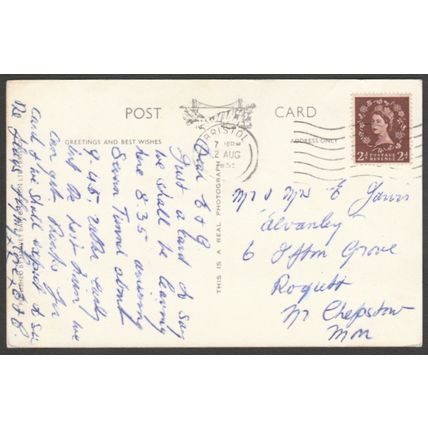 POST CARD
GREETINGS AND BEST WISHES
ADDRESS ONLY
BRISTOL
7
12 AUG
195
POSTAGE REVENUE
2½D 2½D
THIS IS A REAL PHOTOGRAPH
Dear E & G
Just a card to say
we shall be leaving
here 8.35 arriving
Severn Tunnel about
9.45. rather early
but the best train we
can get. Thanks for
card & we shall expect to see
Mr & Mrs E Jarvis
Alvanley
6 Ifton Grove
Rogiett
Nr Chepstow
Mon